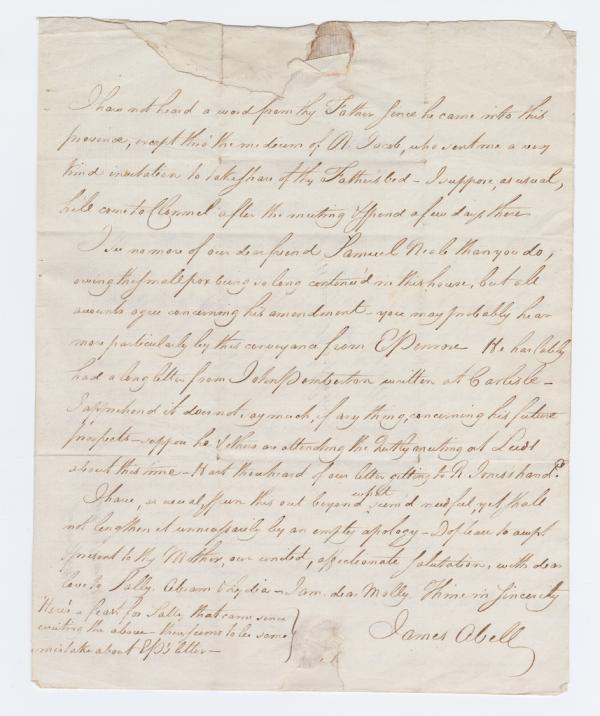 I have not heard a word from thy Father since he came into this
province, except thro' the medium of R. Jacob, who sent me a very
kind invitation to take share of thy Father's bed - I suppose, as usual,
he'll come to Clonmel after the meeting & spend a few days there
I see no more of our dear friend Samuel Neale than you do,
owing the small pox being so long continued in this house, but all
accounts agree concerning his amendment - you may probably hear
more particularly by this conveyance from E Penrose He has lately
had a long letter from John Pemberton written at Carlisle -
I apprehend it does not say much, if any thing, concerning his future
prospects - suppose he & others are attending the Qutly meeting at Leeds
about this time - Hast thou heard of our letter getting to R Jones's hand?
I have, as usual, spun this out beyond what seem'd needful, yet shall
not lengthen it unnecessarily by an empty apology - Do please to accept
& present to thy Mother, our united, affectionate salutation, with dear
love to Sally, Abram & Lydia - I am, dear Molly Thine in sincerity
James Abell
Here's a for Sally that came since
writing the above - there seems to be some
mistake about EP's letter -